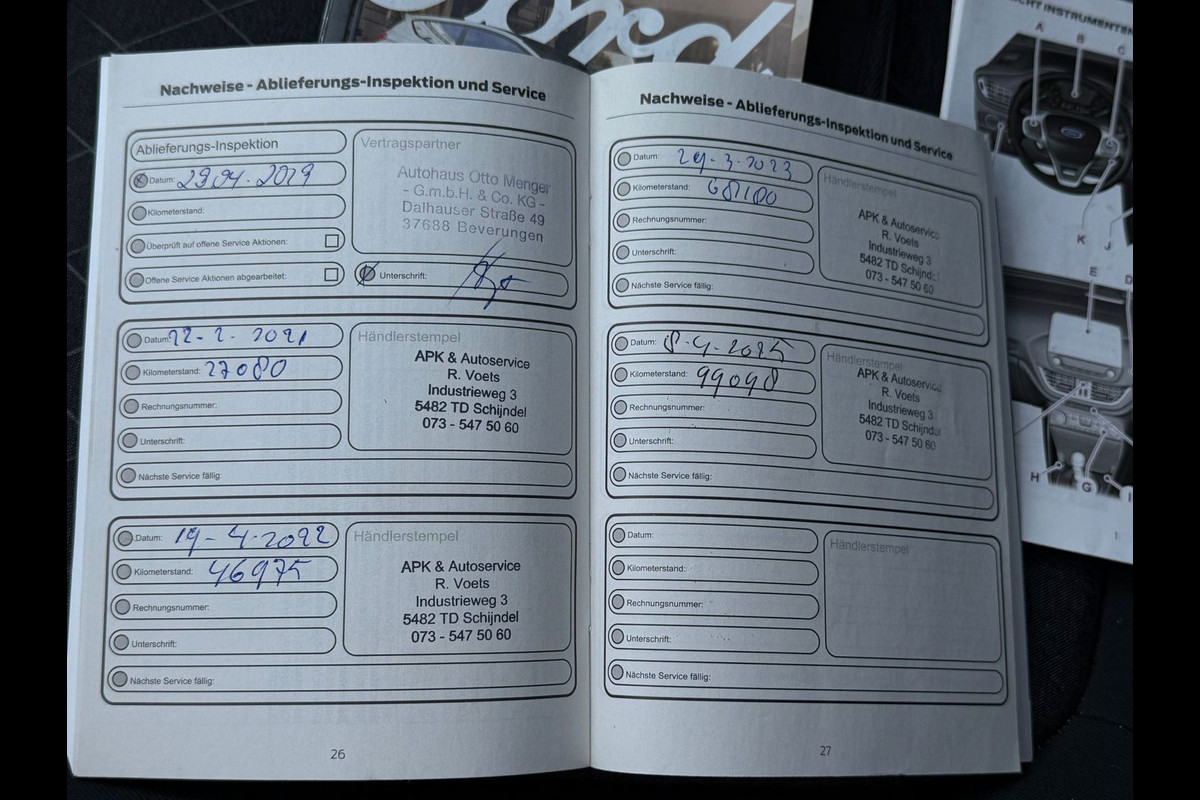 Ford
Nachweise - Ablieferungs-Inspektion und Service
Ablieferungs-Inspektion
Datum: 29.04.2019
Kilometerstand:
Überprüft auf offene Service Aktionen:
Offene Service Aktionen abgearbeitet:
Vertragspartner
Autohaus Otto Menger
- G.m.b.H. & Co. KG -
Dalhauser Straße 49
37688 Beverungen
Unterschrift:
Datum: 22-2-2021
Kilometerstand: 27080
Rechnungsnummer:
Unterschrift:
Nächste Service fällig:
Händlerstempel
APK & Autoservice
R. Voets
Industrieweg 3
5482 TD Schijndel
073 - 547 50 60
Datum: 19-4-2022
Kilometerstand: 46975
Rechnungsnummer:
Unterschrift:
Nächste Service fällig:
Händlerstempel
APK & Autoservice
R. Voets
Industrieweg 3
5482 TD Schijndel
073 - 547 50 60
26
Nachweise - Ablieferungs-Inspektion und Service
Datum: 29-3-2023
Kilometerstand: 68180
Rechnungsnummer:
Unterschrift:
Nächste Service fällig:
Händlerstempel
APK & Autoservice
R. Voets
Industrieweg 3
5482 TD Schijndel
073 - 547 50 60
Datum: 8-4-2025
Kilometerstand: 99098
Rechnungsnummer:
Unterschrift:
Nächste Service fällig:
Händlerstempel
APK & Autoservice
R. Voets
Industrieweg 3
5482 TD Schijndel
073 - 547 50 60
Datum:
Kilometerstand:
Rechnungsnummer:
Unterschrift:
Nächste Service fällig:
Händlerstempel
27
A
B
C
K
J
E
D
H
G
I